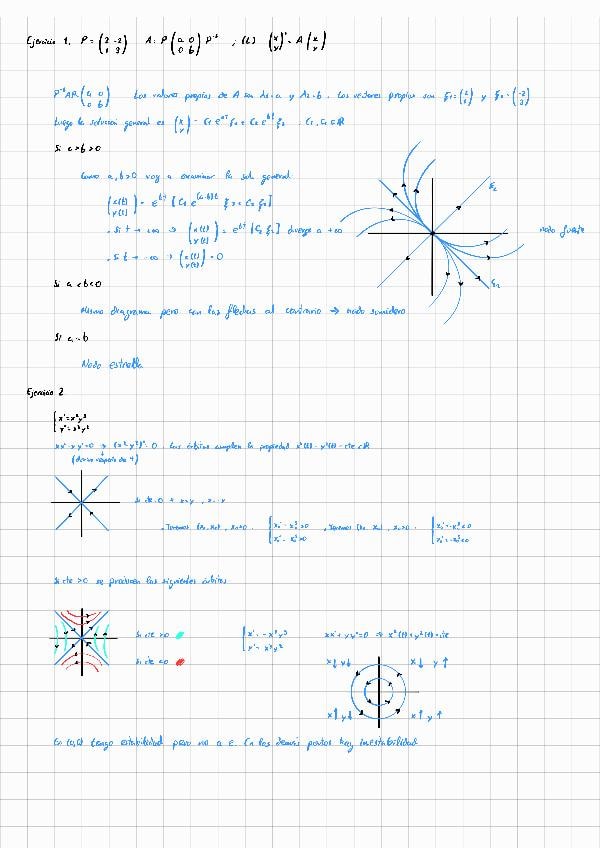 Ejercicio 1. P = (2 -2 / 1 3) A = P (a 0 / 0 b) P⁻¹ ; (b) (x / y)' = A (x / y)
P⁻¹AP = (a 0 / 0 b) Los valores propios de A son λ₁=a y λ₂=b. Los vectores propios son ξ₁=(2 / 1) y ξ₂=(-2 / 3)
Luego la solución general es (x / y) = C₁ e^{at} ξ₁ + C₂ e^{bt} ξ₂ . C₁, C₂ ∈ ℝ
Si a>b>0
Como a,b>0 voy a examinar la sol. general
(x(t) / y(t)) = e^{bt} [C₁ e^{(a-b)t} ξ₁ + C₂ ξ₂]
. Si t → ∞ ⇒ (x(t) / y(t)) = e^{bt} [C₂ ξ₂] diverge a +∞
. Si t → -∞ → (x(t) / y(t)) = 0
ξ₂
ξ₂
nodo fuente
Si a<b<0
Mismo diagrama pero con las flechas al contrario → nodo sumidero
Si a=b
Nodo estrella
Ejercicio 2
Las órbitas cumplen la propiedad x²(t) - y²(t) = cte ∈ ℝ
(deriva respecto de t)
Si cte>0 se producen las siguientes órbitas
Si cte >0
Si cte <0
{x' = -x²y³ / y' = x³y²
xx'+yy'=0 ⇒ x²(t)+y²(t)=cte
x↓ y↓ x↓ y↑
x↑ y↓ x↑ y↑
En (0,0) tengo estabilidad pero no a.e. En los demás puntos hay inestabilidad